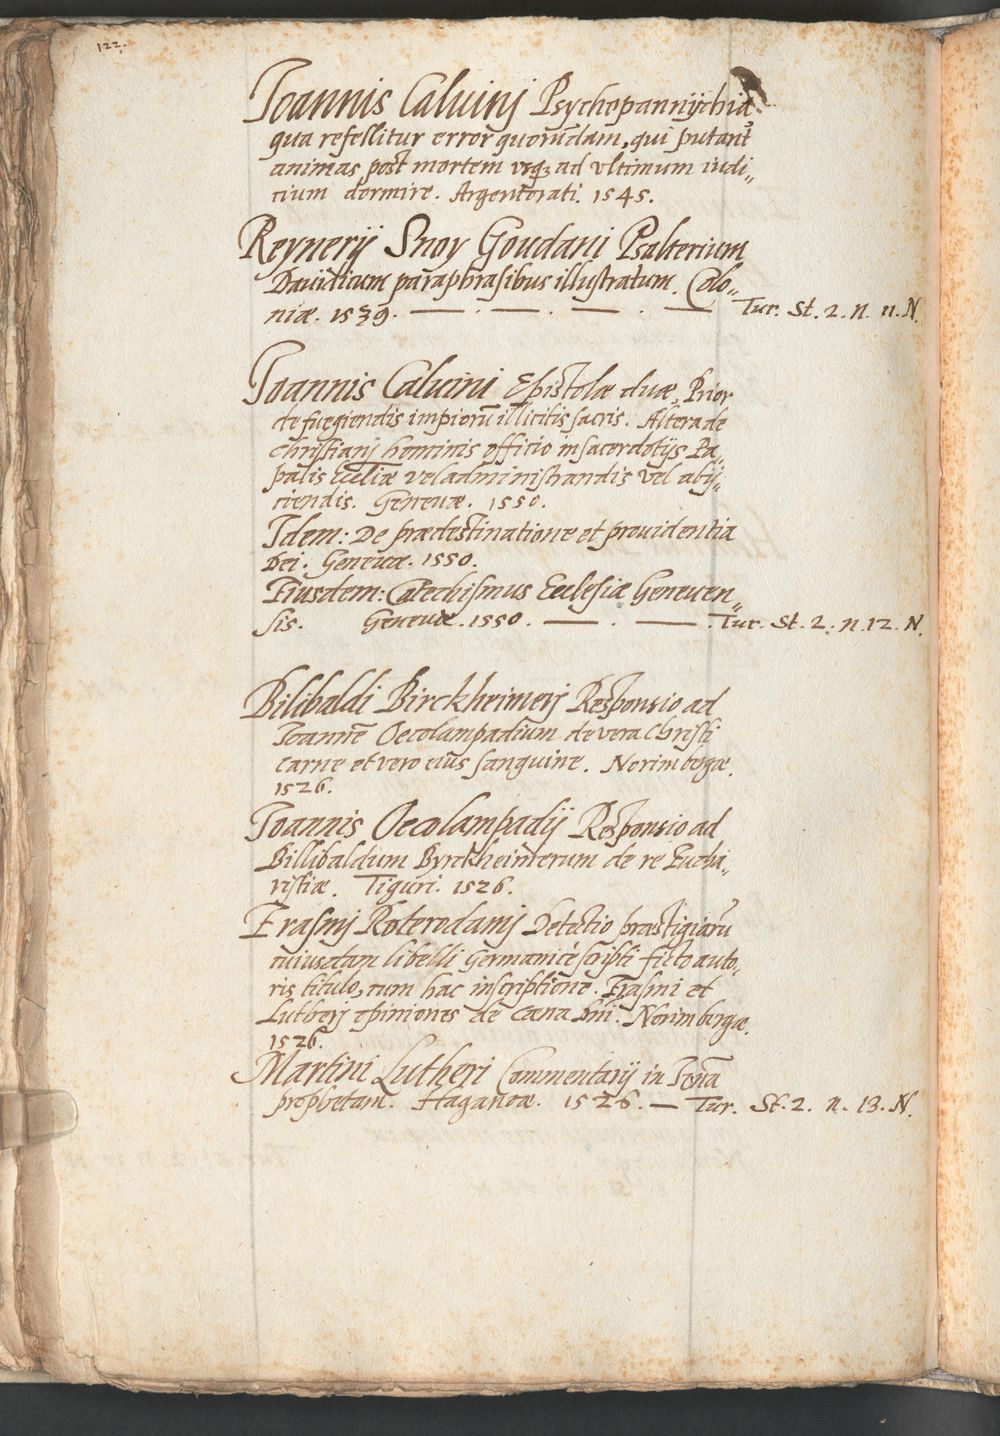 122.
Joannis Caluinj Psychopannÿchia
qua refellitur error quorūdam, qui putant
animas, post mortem vsq3 ad vltimum iudi„
cium dormire. Argentorati. 1545.
Reynerij Snoy Goudani Psalterium
Dauidicum paraphrasibus illustratum. Colo„
niæ. 1539. — . — . — . — Tur. St. 2. n. 11. N.
Joannis Caluini Epistolæ duæ, Prior
de fuegiendis impiorū illicitis sacris. Altera de
christianj hominis officio in sacerdotijs Pa„
palis Eccliæ vel administrandis vel abij„
ciendis. Geneuæ. 1550.
Idem: De prædestinatione et prouidentia
Dei. Geneuæ. 1550.
Eiusdem: Catechismus Ecclesiæ Geneuen„
sis. Geneuæ. 1550. — . — . Tur. St. 2. n. 12. N.
Bilibaldi Birckheimerj Responsio ad
Joannē Oecolampadium de vera Christi
carne et vero eius sanguine. Norimbergæ.
1526.
Joannis Oecolampadij Responsio ad
Billibaldum Byrckheimerum de re Eucha„
ristiæ. Tiguri. 1526.
Erasmj Roterodamj Detectio præstigiarū
cuiusdam libelli Germanicè scripti ficto auto„
ris titulo, cum hac inscriptione. Erasmi et
Lutherj opiniones de cæna Dnī. Norimbergæ.
1526.
Martini Lutheri Commentarij in Jonā
prophetam. Haganoæ. 1526. — Tur. St. 2. n. 13. N.